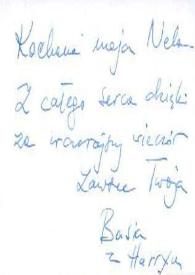 Kochana moja Nelu
Z całego serca dzięki
za wczorajszy wieczór
zawsze Twoja
Basia
z Harrym